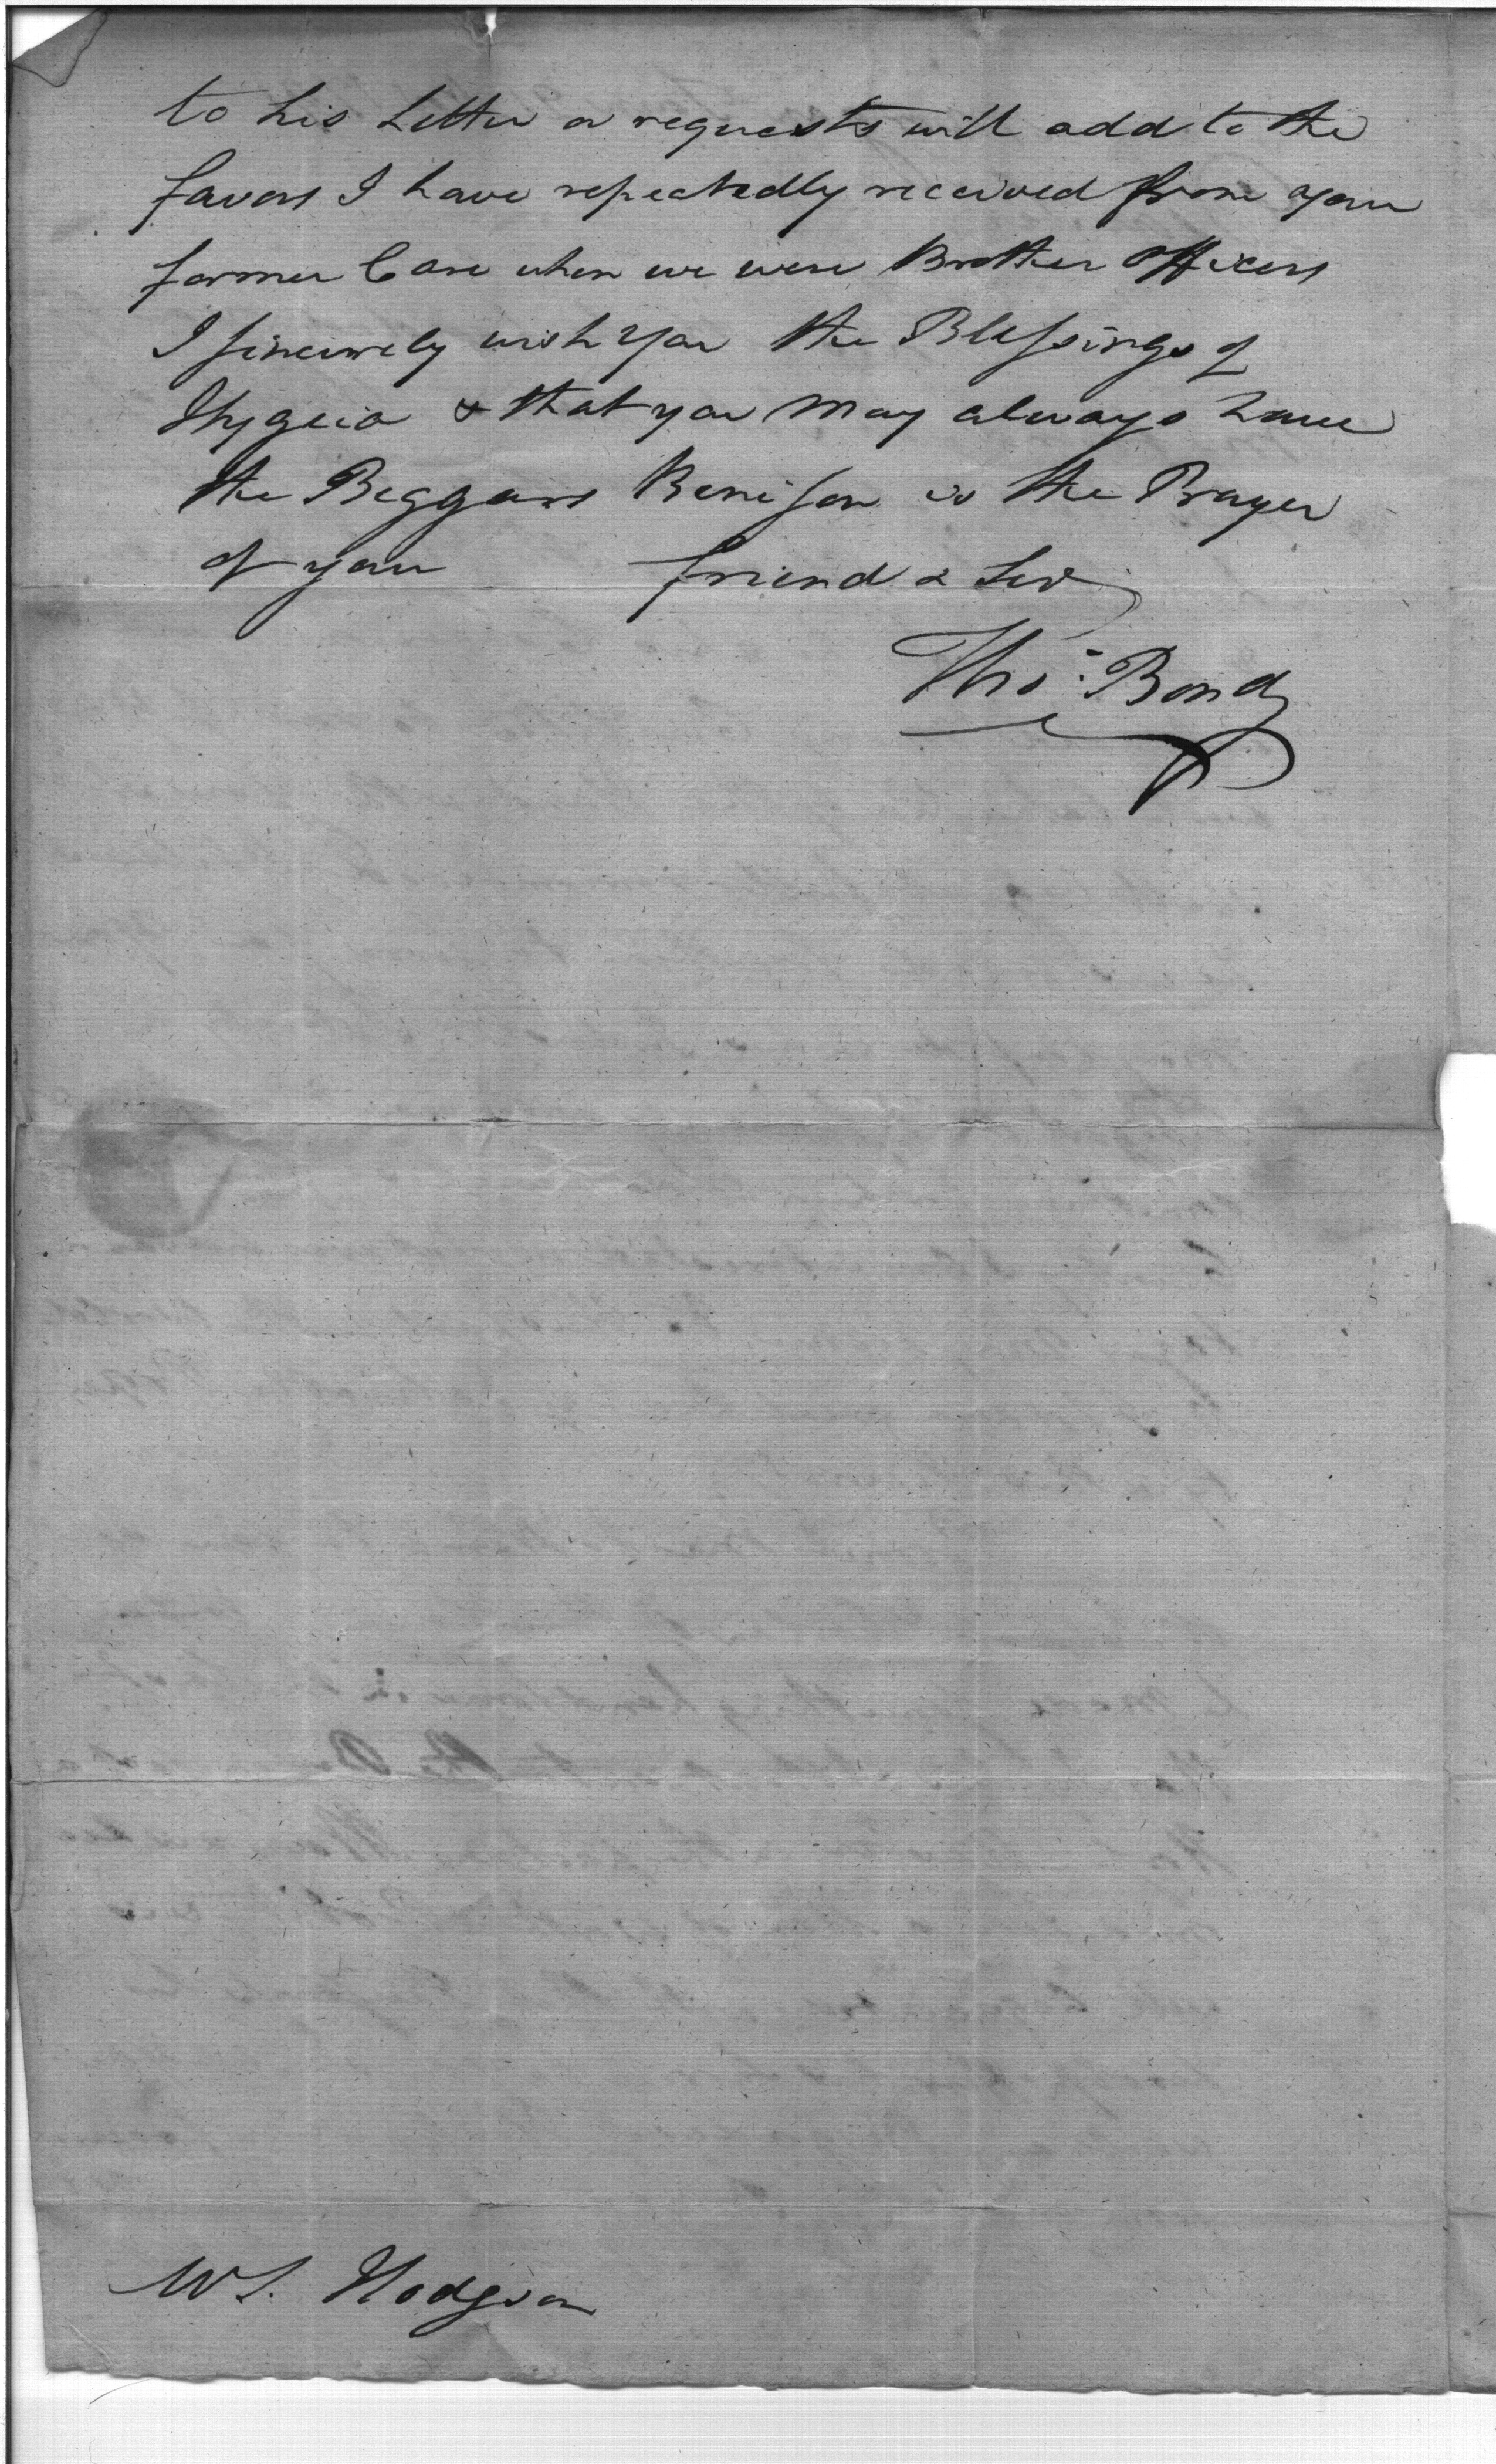 to his Letter or requests will add to the
favors I have repeatedly received from your
former Care when we were Brother Officers
I sincerely wish you the Blessings of
Hygeia & that you may always have
the Beggars Benison is the Prayer
of your friend & Sert
Thos: Bond
Wm. Hodgson